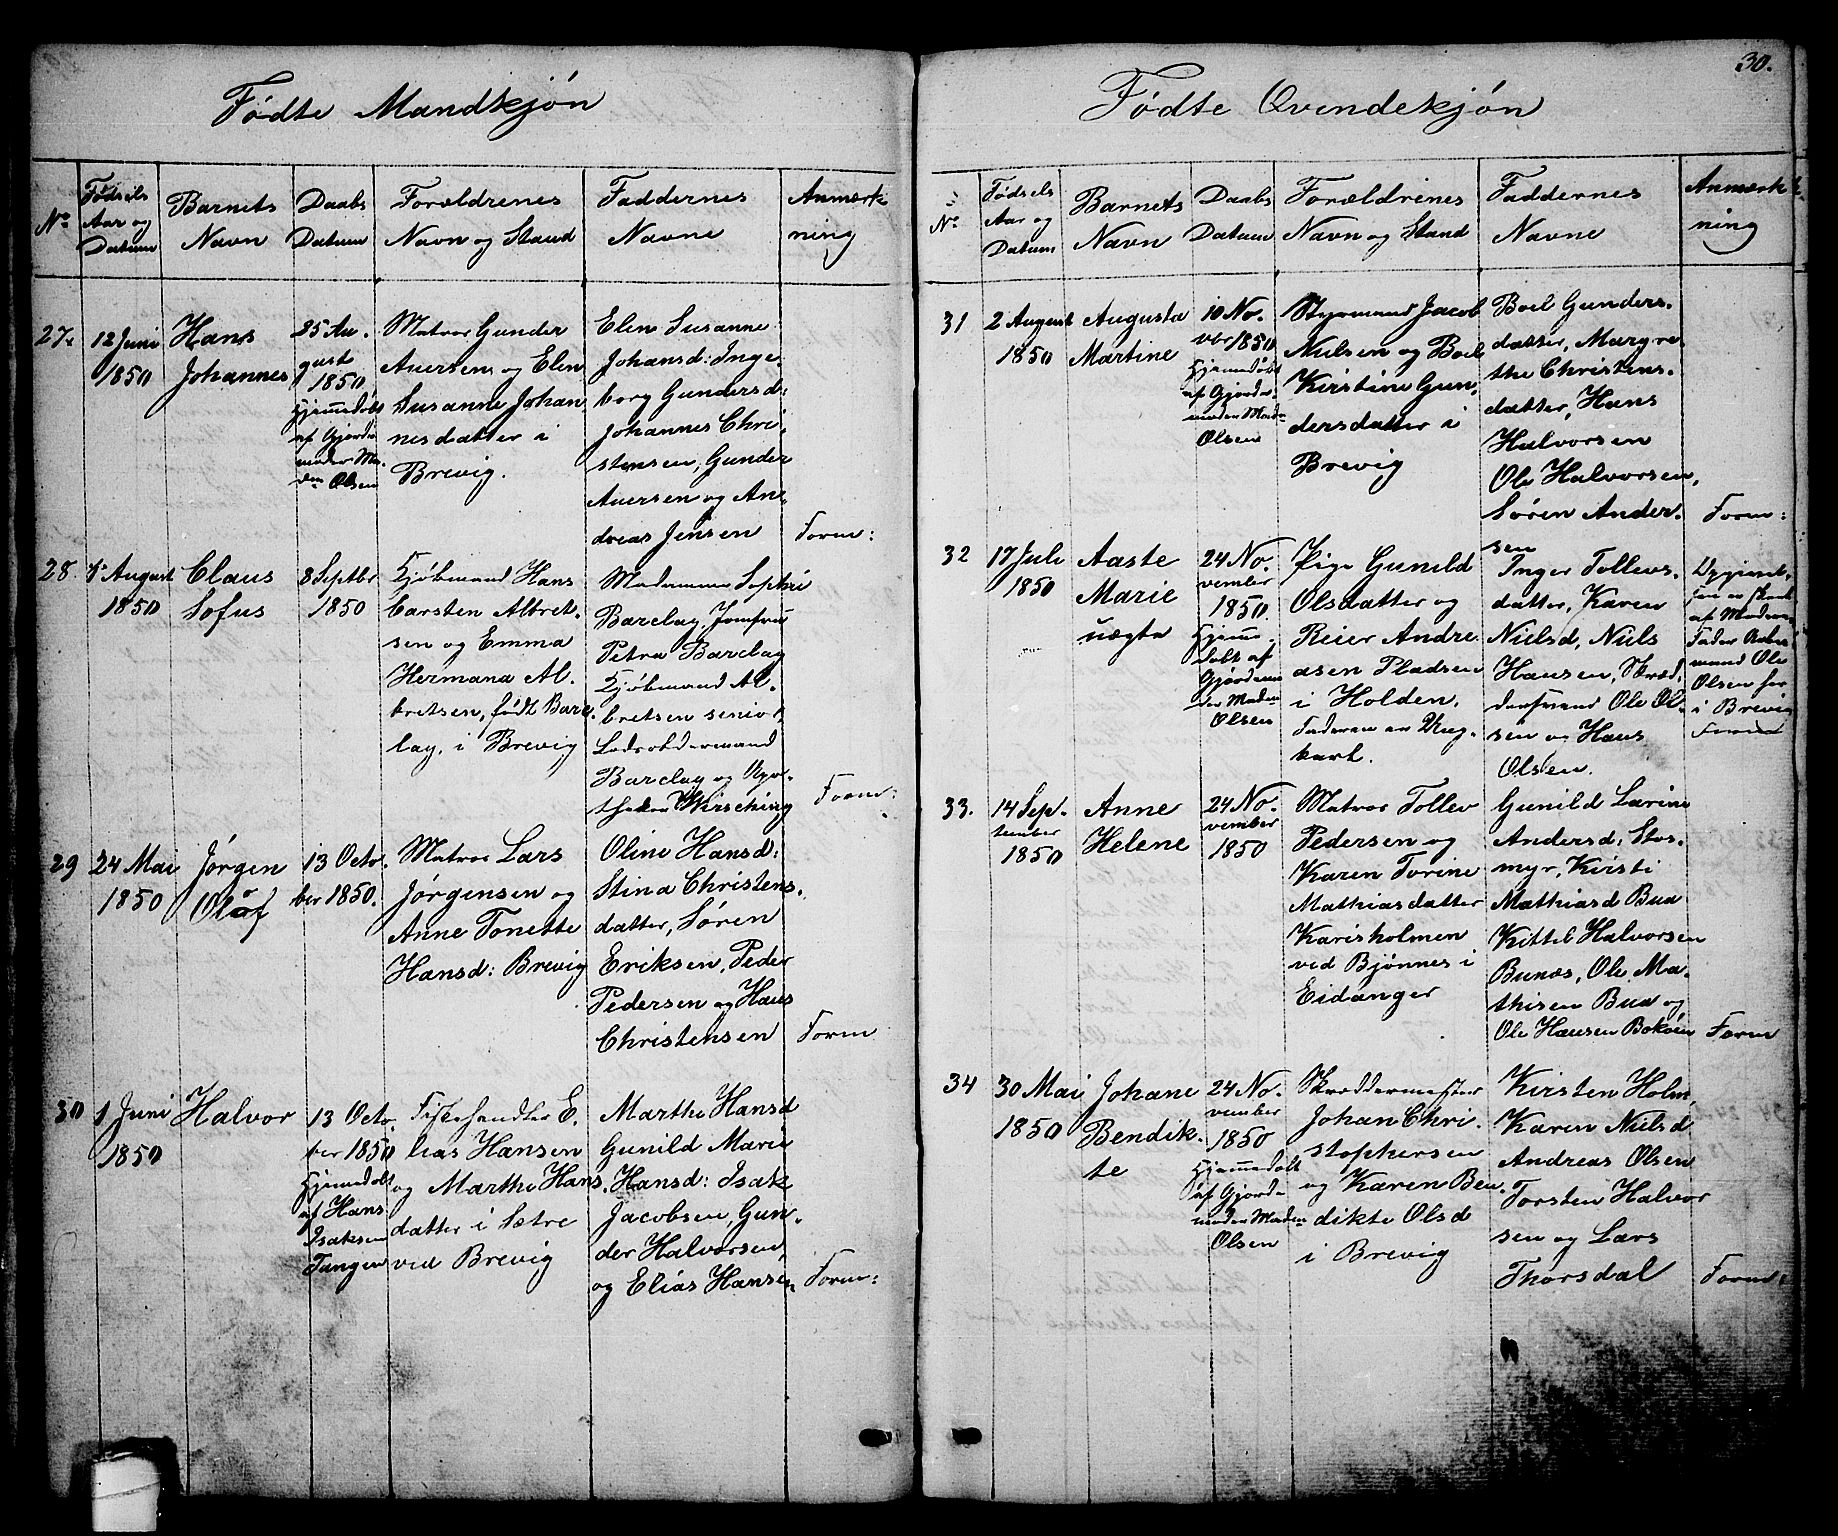 30.
Fødte Mandkjøn
No
Fødsels
Aar og
Datum
Barnets
Navn
Daabs
Datum
Forældrenes
Navn og Stand
Faddernes
Navne
Anmærk
ning
27.
12 Juni
1850
Hans
Johannes
25 Au-
gust
1850,
Hjemmedøbt
af Gjorde
moder Ma-
dm Olsen
Matros Gunder
Auersen og Elen
Susanne Johan
nesdatter i
Brevig.
Elen Susanne
Johansd: Inge-
borg Gundersd:
Johannes Chri-
stensen, Gunder
Auersen og An-
dreas Jensen
Form:
28.
August
1850
Claus
Sofus
8 Septbr
1850
Kjøbmand Hans
Carsten Albret-
sen og Emma
Hermana Al-
bretsen, født Barc-
lay, i Brevig
Madamme Sophie
Barclay, Jomfru
Petra Barclay
Kjøbmand Al-
bretsen senior,
Lodsoldermand
Barclay og Apo-
theker Wirsching
Form:
29
24 Mai
1850
Jørgen
Olaf
13 Octo-
ber 1850.
Matros Lars
Jørgensen og
Anne Tonette
Hansd: Brevig
Oline Hansd:
Stina Christens-
datter, Søren
Eriksen, Peder
Pedersen og Hans
Christensen
Form
30
1 Juni
1850
Halvor
13 Octo-
ber 1850
Hjemmedøbt
af Hans
Isaksen
Tangen
Fiskehandler E-
lias Hansen
og Marthe Hans-
datter i Sætre
ved Brevig
Marthe Hansd
Gunild Marie
Hansd: Isak
Jacobsen, Gun-
der Halvorsen,
og Elias Hansen
Form:
Fødte Qvindekjøn
No
Fødsels
Aar og
Datum
Barnets
Navn
Daabs
Datum
Forældrenes
Navn og Stand
Faddernes
Navne
Anmærk
ning
31
2 August
1850
Augusta
Martine
10 No-
vbr 1850
Hjemmedøbt
af Gjorde-
moder Madm
Olsen
Styrmand Jacob
Nielsen og Boel
Kirstine Gun-
dersdatter i
Brevig
Boel Gunders-
datter, Margre
the Christens-
datter, Hans
Halvorsen
Ole Halvorsen,
Søren Ander-
sen
Form:
32
17 Juli
1850
Aaste
Marie
uægte
24 No-
vember
1850.
Hjemme-
døbt af
Gjordemo
der Madm
Olsen
Pige Gunild
Olsdatter og
Reier Andre
asen Pladsen
i Holden.
Faderen er Ung-
karl.
Inger Tollevs-
datter, Karen
Nielsd, Niels
Hansen, Skræd-
dersvend Ole Ol-
sen og Hans
Olsen.
af Moderens
Fader
mand Ole
Olsen her
i Brevig
Form
33.
14 Sep-
tember
1850
Anne
Helene
24 No-
vember
1850
Matros Tollev
Pedersen og
Karen Torine
Mathiasdatter
Karisholmen
ved Bjønnes i
Eidanger
Gunild Larine
Andersd: Stos-
myr, Kirsti
Mathiasd Bua
Kittel Halvorsen
Bunæs, Ole Ma-
thisen Bua og
Ole Hansen Bokøien
Form
34
30 Mai
1850
Johane
Bendik-
te
24 No-
vember
1850
Hjemmedøbt
af Gjorde-
moder Madm
Olsen
Skreddermester
Johan Chri-
stophersen
og Karen Ben-
dikte Olsd
i Brevig
Kirsten Holm,
Karen Nielsd
Andreas Olsen
Torsten Halvor
sen og Lars
Thorsdal
Form: